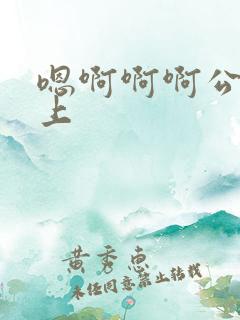 嗯啊啊啊公
上
黄秀惠
未经同意禁止转载